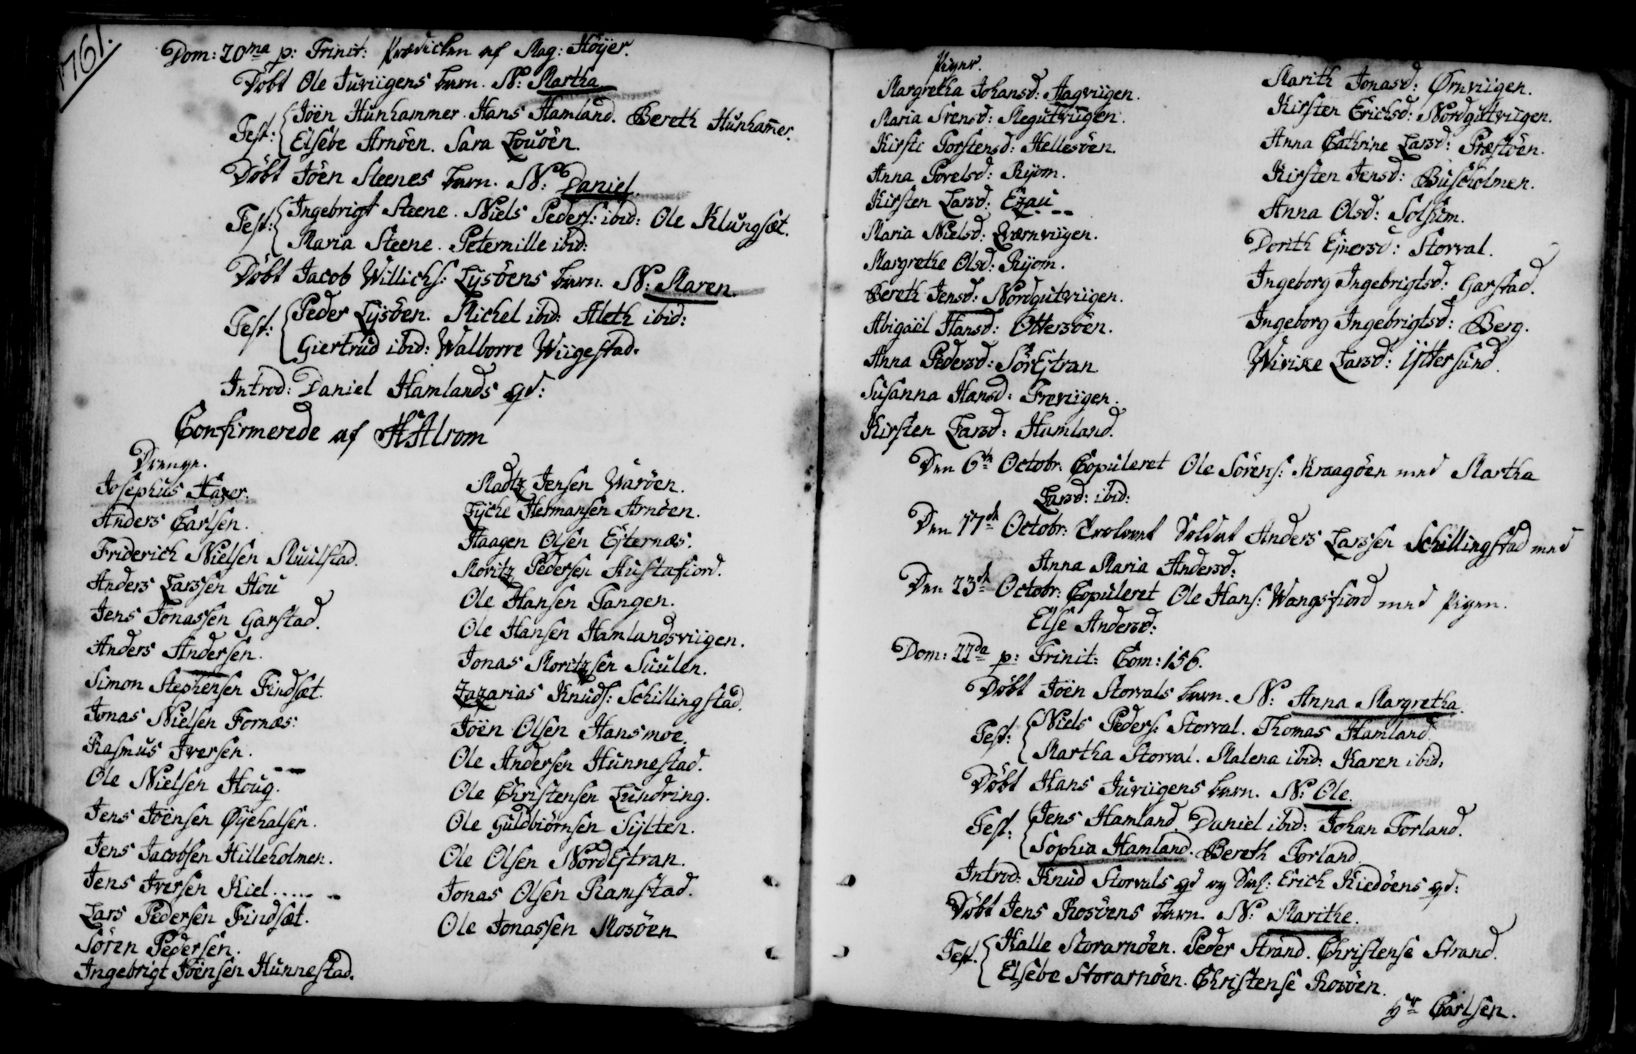 1761.
Dom: 20ma p: Trinit: Prædicken af Mag: Höÿer.
Döbt Ole Juviigens barn. N: Martha
Test: Jöen Hunhammer. Hans Hamland. Bereth Hunham̄er.
Elsebe Arnöen. Sara Louöen.
Döbt Jöen Steenes barn. N: Daniel
Test: Ingebrigt Steene. Niels Peders: ibid: Ole Klungsæt.
Maria Steene. Peternille ibid:
Döbt Jacob Willichs: Lysöens barn. N: Maren.
Test: Peder Lysöen. Michel ibid: Aleth ibid:
Giertrud ibid: Walborre Wiigestad.
Introd: Daniel Hamlands qd:
Confirmerede af H Alrom
Drenge.
Josephus Hager.
Anders Carlsen.
Friderich Nielsen Muulstad.
Anders Larssen Hou
Jens Jonassen Garstad.
Anders Andersen.
Simon Stephensen Findsæt.
Jonas Nielsen Fornæs:
Rasmus Iversen.
Ole Nielsen Houg.
Jens Jöensen Øÿehalsen.
Jens Jacobsen Hilleholmen.
Jens Iversen Kiel.....
Lars Pedersen Findsæt.
Sören Pedersen.
Ingebrigt Jöensen Hunnestad.
Madtz Jensen Waröen.
Lyche Hermansen Arnöen.
Haagen Olsen Esternæs.
Moritz Pedersen Hustafiord.
Ole Hansen Tangen.
Ole Hansen Hamlandsviigen.
Jonas Moritzsen Suulen.
Zazarias Knuds: Schillingstad.
Jöen Olsen Hansmoe.
Ole Andersen Hunnestad.
Ole Christensen Lundring.
Ole Guldbiörnsen Sÿlten.
Ole Olsen NordEstran.
Jonas Olsen Ramstad.
Ole Jonassen Mosöen
Piger.
Margretha Johansd: Hagviigen.
Maria Svensd: Slegutviigen.
Kirste Torstensd: Hellesöen.
Anna Povelsd: Rÿom.
Kirsten Larsd: Ezau
Maria Nielsd: Qværnviigen.
Margrethe Olsd: Rÿom.
Bereth Jensd: Nordgutviigen.
Abigaël Hansd: Ottersöen.
Anna Pedersd: SörEstran
Susanna Hansd: Troviigen.
Kirsten Larsd: Hamland.
Marith Jonasd: Ørnviigen.
Kirsten Erichsd: Nordgutviigen.
Anna Cathrine Larsd: Præstöen.
Kirsten Jensd: Buscholmen.
Anna Olsd: Solhim.
Dorith Ejnersd: Storval.
Ingeborg Ingebrigtsd: Garstad.
Ingeborg Ingebrigtsd: Berg.
Wivike Larsd: Ÿttersund.
Den 6te Octobr. Copuleret Ole Sörens: Kraagöen med Martha
Larsd: ibid:
Den 17de Octobr: Soldat Anders Larssen Schillingstad med
Anna Maria Andersd:
Den 23de Octobr: Copuleret Ole Hans: Wangsfiord med Pigen.
Else Andersd:
Dom: 22da p: Trinit: Com: 156.
Döbt Jöen Storvals barn. N: Anna Margretha.
Test: Niels Peders: Storval. Thomas Hamland.
Martha Storval. Malena ibid: Karen ibid:
Döbt Hans Juviigens barn. N: Ole.
Test: Jens Hamland Daniel ibid: Johan Torland.
Sophia Hamland. Bereth Torland.
Introd: Knud Storvals qd og Erich Kiedöens qd:
Döbt Jens Rosöens barn. N: Marithe.
Test: Halle Storarnöen. Peder Strand. Christense Strand.
Elsebe Storarnöen. Christense Rosöen.
Hr Carlsen.